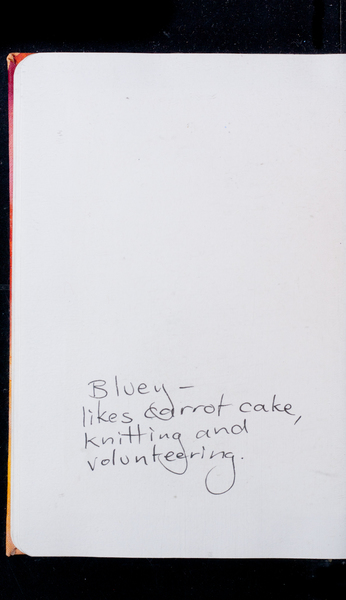 Bluey –
likes carrot cake,
knitting and
volunteering.